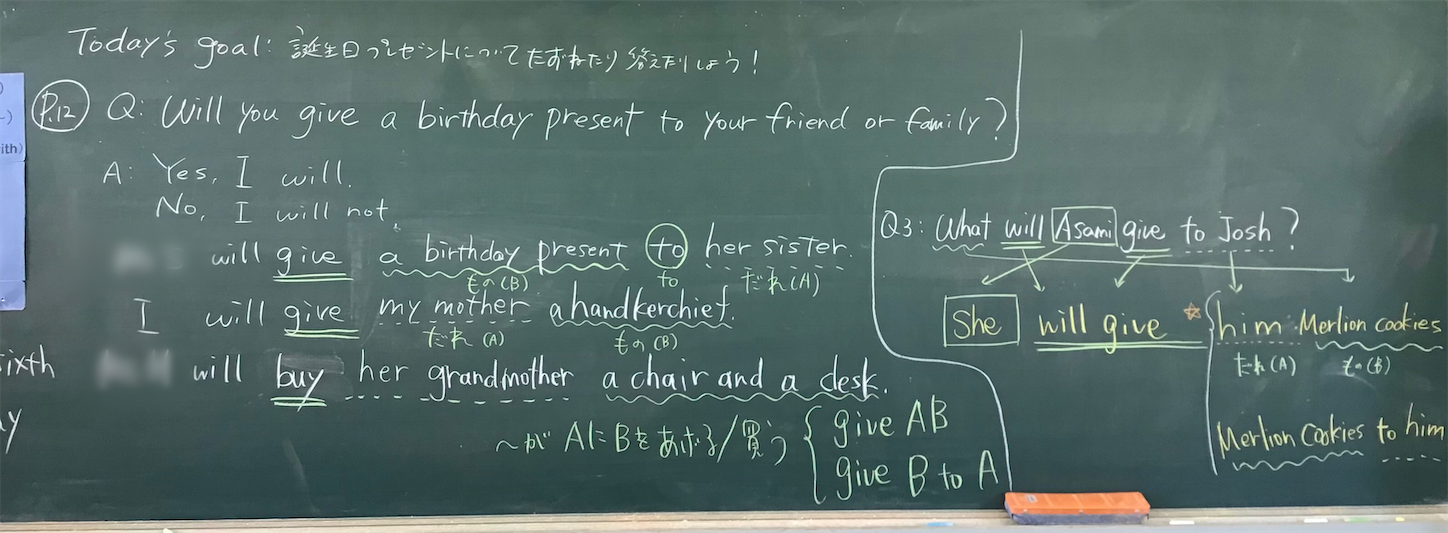 Today's goal: 誕生日プレゼントについてたずねたり答えたりしよう!
P.12 Q: Will you give a birthday present to your friend or family?
A: Yes, I will.
No, I will not.
will give a birthday present to her sister.
もの(B) to だれ(A)
I will give my mother a handkerchief.
だれ(A) もの(B)
will buy her grandmother a chair and a desk.
〜が AにBをあげる/買う { give AB
give B to A
Q3: What will Asami give to Josh?
She will give ☆ { him Merlion cookies
だれ(A) もの(B)
Merlion cookies to him
ixth
y
ith)